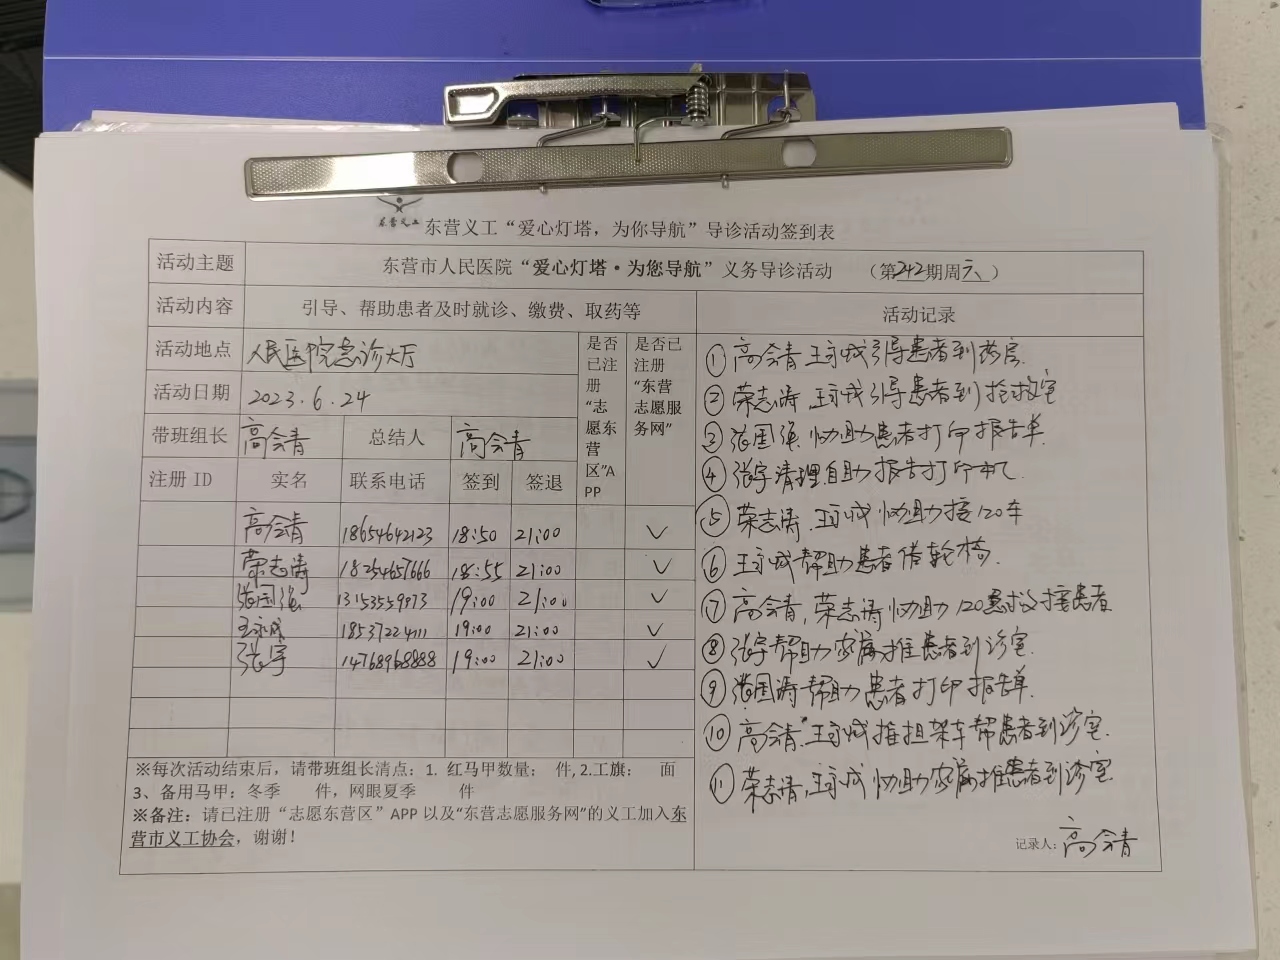 东营义工
东营义工“爱心灯塔，为你导航”导诊活动签到表
活动主题 东营市人民医院“爱心灯塔·为您导航”义务导诊活动 （第242期周六）
活动内容 引导、帮助患者及时就诊、缴费、取药等
活动地点 人民医院急诊大厅
活动日期 2023.6.24
带班组长 高会青 总结人 高会青
注册 ID 实名 联系电话 签到 签退 是否已注册“志愿东营区”APP 是否已注册“东营志愿服务网”
高会青 18654642123 18:50 21:00 ✓
荣志涛 18254657666 18:55 21:00 ✓
张国强 13153559973 19:00 21:00 ✓
王永成 18537224111 19:00 21:00 ✓
张宇 14768968888 19:00 21:00 ✓
※每次活动结束后，请带班组长清点：1. 红马甲数量： 件, 2.工旗： 面
3、备用马甲：冬季 件，网眼夏季 件
※备注：请已注册“志愿东营区”APP 以及“东营志愿服务网”的义工加入东
营市义工协会，谢谢！
活动记录
① 高会青 王永成引导患者到药房.
② 荣志涛 王永成引导患者到抢救室
③ 张国强 协助患者打印报告单.
④ 张宇清理自助报告打印机.
⑤ 荣志涛、王永成协助接120车
⑥ 王永成帮助患者借轮椅.
⑦ 高会青，荣志涛协助120患者
⑧ 张宇帮助家属推患者到诊室.
⑨ 张国涛帮助患者打印报告单.
⑩ 高会青、王永成推担架车帮患者到诊室.
⑪ 荣志涛，王永成协助家属推患者到诊室
记录人：高会青